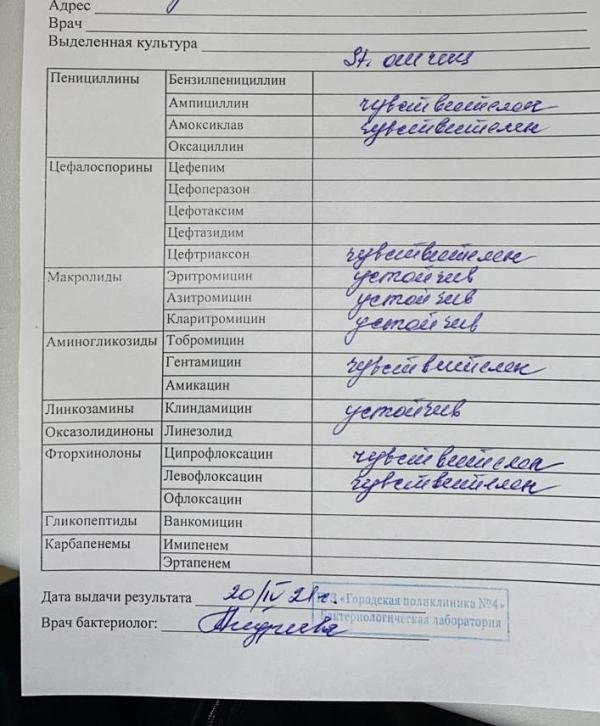 Адрес
Врач
Выделенная культура St. aureus
Пенициллины Бензилпенициллин
Ампициллин чувствителен
Амоксиклав чувствителен
Оксациллин
Цефалоспорины Цефепим
Цефоперазон
Цефотаксим
Цефтазидим
Цефтриаксон чувствителен
Макролиды Эритромицин устойчив
Азитромицин устойчив
Кларитромицин устойчив
Аминогликозиды Тобромицин
Гентамицин чувствителен
Амикацин
Линкозамины Клиндамицин устойчив
Оксазолидиноны Линезолид
Фторхинолоны Ципрофлоксацин чувствителен
Левофлоксацин чувствителен
Офлоксацин
Гликопептиды Ванкомицин
Карбапенемы Имипенем
Эртапенем
Дата выдачи результата 20/IV 21г.
«Городская поликлиника №4»
Врач бактериолог: Андреева
Бактериологическая лаборатория